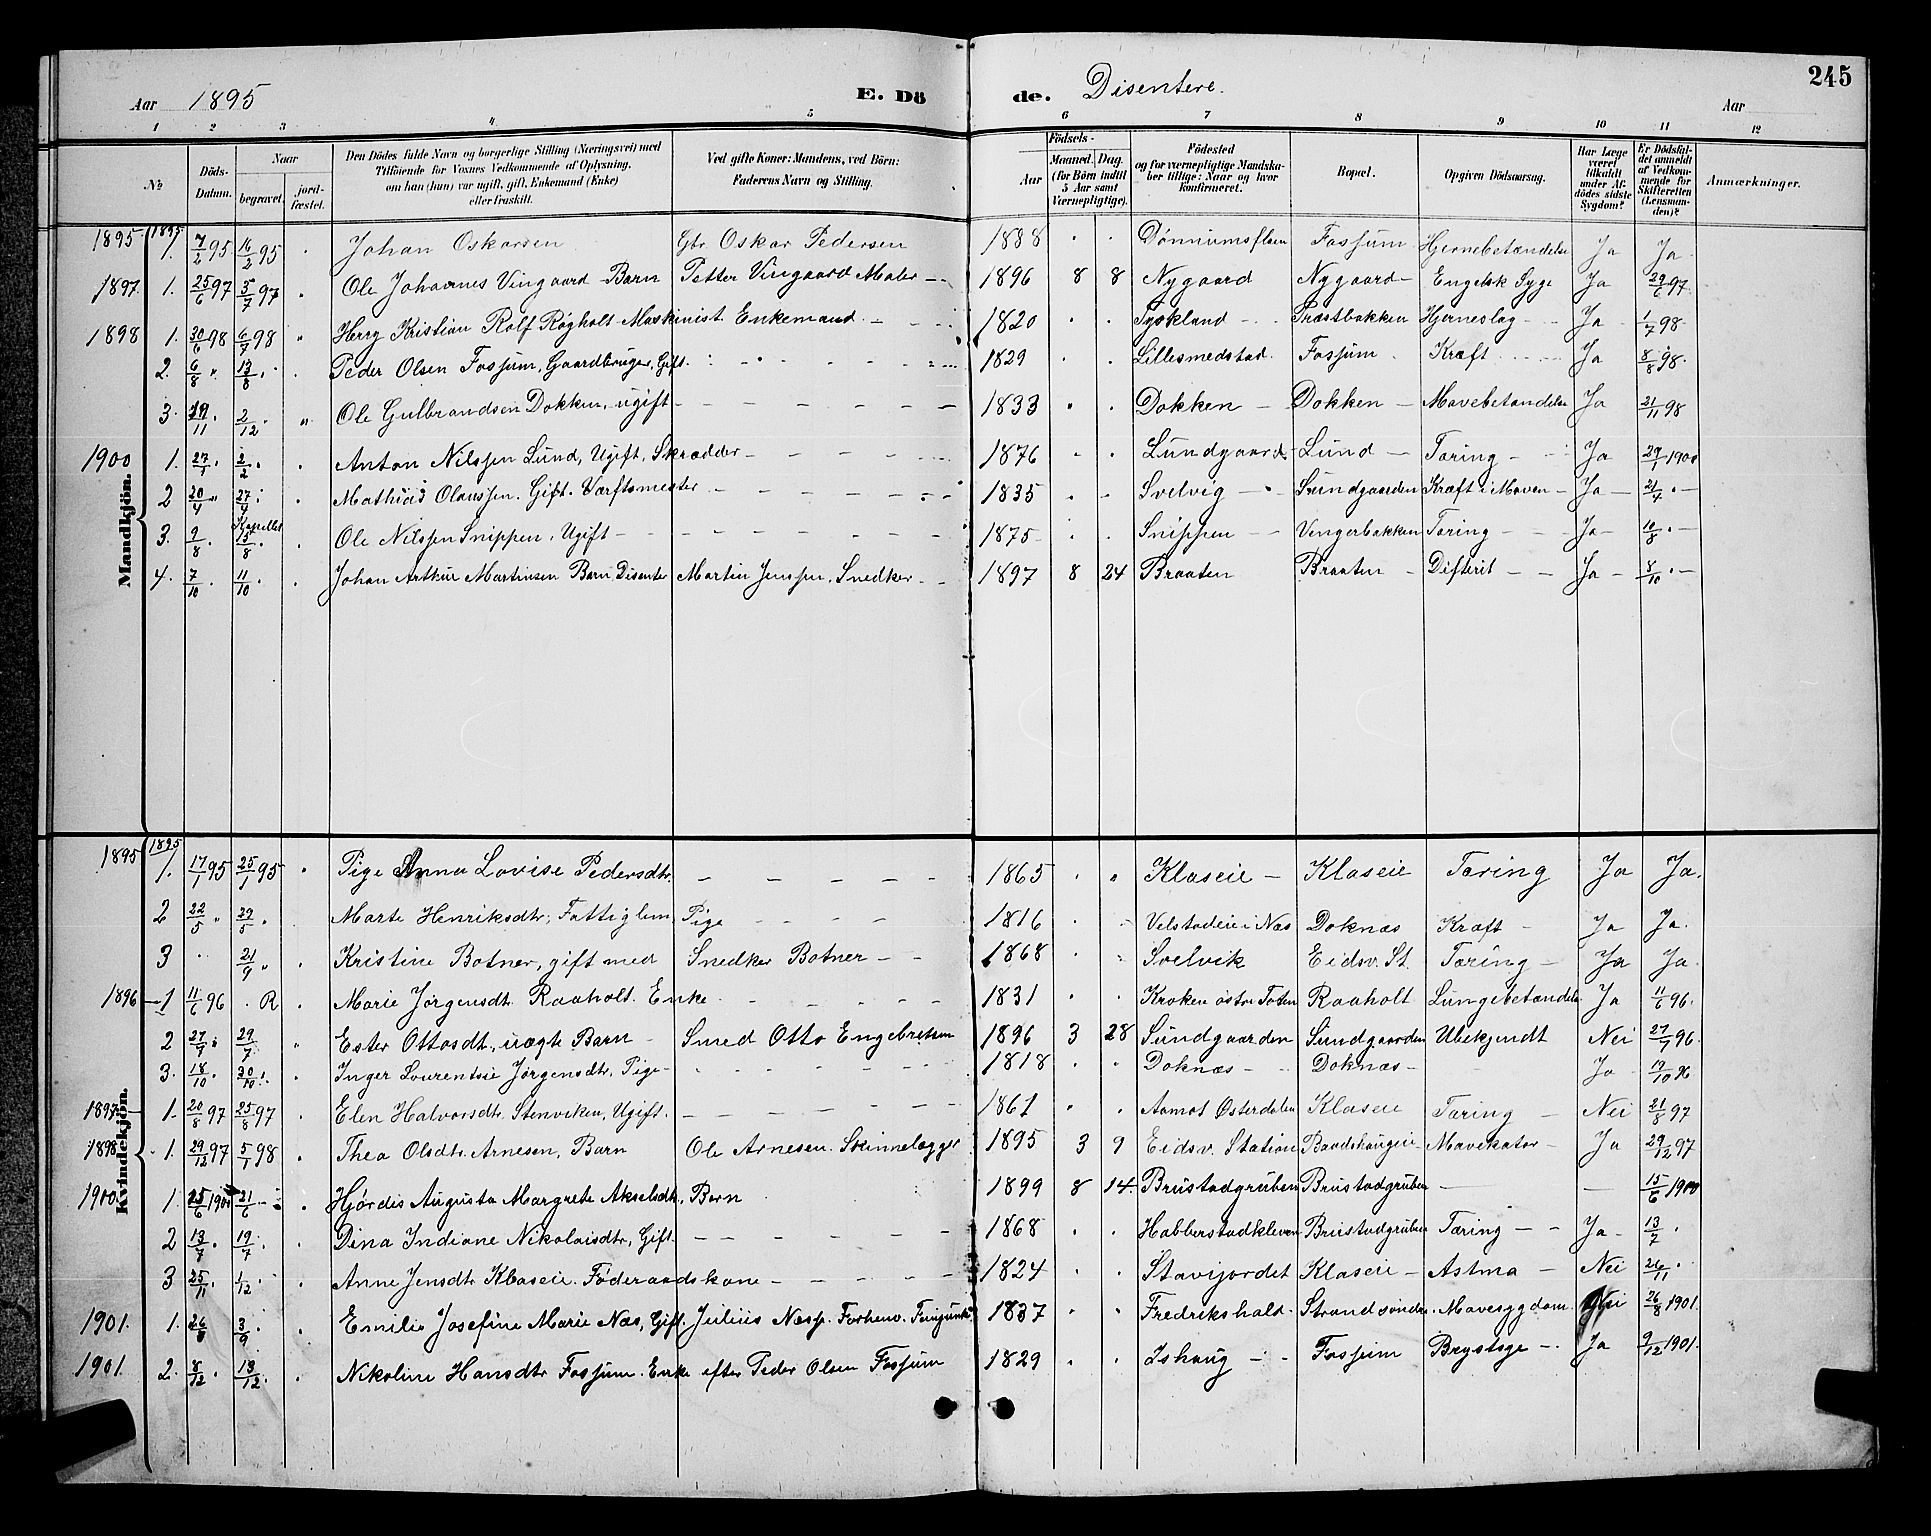 245
Aar 1895 E. Dö de. Disentere. Aar
1 2 3 4 5 6 7 8 9 10 11 12
№ Döds-Datum. Naar begravet. jordfæstet. Den Dödes fulde Navn og borgerlige Stilling (Næringsvei) med Tilföiende for Voxnes Vedkommende af Oplysning, om han (hun) var ugift, gift, Enkemand (Enke) eller fraskilt. Ved gifte Koner: Mandens, ved Börn: Faderens Navn og Stilling. Födsels- Aar Maaned. Dag. (for Börn indtil 5 Aar samt Værnepligtige). Födested og for værnepligtige Mandskaber tillige: Naar og hvor konfirmeret. Bopæl. Opgiven Dödsaarsag. Har Læge været tilkaldt under Afdödes sidste Sygdom? Er Dödsfaldet anmeldt af Vedkommende for Skifteretten (Lensmanden)? Anmærkninger.
Mandkjön.
1895 1895 1. 7/2 95 16/2 95 Johan Oskarsen Gbr. Oskar Pedersen 1888 Dönniumsflaen Fossum Hjernebetændelse Ja Ja
1897 1. 25/6 97 3/7 97 " Ole Johannes Vingaard Barn Petter Vingaard Maler 1896 8 8 Nygaard Nygaard Engelsk Syge Ja 29/6 97
1898 1. 30/6 98 6/7 98 " Herg Kristian Rolf Røgholt Maskinist Enkemand 1820 Tyskland Præstbakken Hjerneslag Ja 1/7 98
2. 6/8 " 13/8 Peder Olsen Fossum, Gaardbruger, Gift 1829 Lillesmedstad Fossum Kræft Ja 8/8 98
3. 19/11 2/12 " Ole Gulbrandsen Dokken, ugift 1833 Dokken Dokken Mavebetændelse Ja 21/11 98
1900 1. 27/1 2/2 Anton Nilssen Lund, Ugift, Skrædder 1876 Lundgaard Lund Tæring Ja 29/1 1900
2 20/4 " 27/4 Mathias Olaussen. Gift. Værftsmester 1835 Svelvig Sundgaarden Kræft i Maven Ja 21/4
3. 9/8 Kapellet 13/8 Ole Nilssen Snippen, Ugift 1875 Snippen Vengerbakken Tæring Ja 10/8
4. 7/10 11/10 Johan Arthur Martinsen Barn Disenter Martin Jenssen, Snedker 1897 8 24 Braaten Braaten Difterit Ja 8/10
Kvindekjön.
1895 1895 1. 17/1 95 25/1 95 Pige Anna Lovise Pedersdtr. 1865 Klaseie Klaseie Tæring Ja Ja.
2 22/5 " 29/5 Marte Henriksdtr, Fattiglem Pige 1816 Velstadeie i Næs Doknæs Kræft Ja Ja.
3 21/9 " Kristine Botner, gift med Snedker Botner 1868 Svelvik Eidsv. St. Tæring Ja Ja
1896 1 11/6 96 R Marie Jørgensdtr Raaholt. Enke 1831 Kroken østre Toten Raaholt Lungebetændelse Ja 11/6 96.
2 27/7 29/7 " Ester Ottosdt., uægte Barn Smed Otto Engebretsen 1896 3 28 Sundgaarden Sundgaarden Ubekjendt Nei 27/7 96
3. 18/10 30/10 Inger Lourentsie Jørgensdtr, Pige 1818 Doknæs Doknæs Ja 19/10 96
1897 1. 20/8 97 25/8 97 Elen Halvorsdtr Stenviken, Ugift. 1861 Aamot Østerdalen Klaseie Tæring Nei 21/8 97
1898 1. 29/12 97 5/1 98 Thea Olsdtr. Arnesen, Barn Ole Arnesen. Skinnelægger 1895 3 9 Eidsv. Station Raadshaugeie Mavekatar Ja 29/12 97
1900 1. 25/6 1900 21/6 Hjørdis Augusta Margrete Akselsdtr, Barn 1899 8 14 Brustadgruben Brustadgruben 15/6 1900
2 13/7 19/7 Dina Indiane Nikolaisdtr, Gift. 1868 Habberstadkleven Brustadgruben Tæring Ja 13/7
3 25/11 1/12 Anne Jensdtr Klaseie. Føderaadskone 1824 Stavfjordet Klaseie Astma Nei 26/11
1901. 1. 26/8 3/9 Emilie Josefine Marie Næs, Gift Julius Næss. Forhenv. 1837 Fredrikshald Strandsønder Mavesygdom Nei 26/8 1901.
1901. 2. 8/12 13/12 Nikoline Hansdtr Fossum. Enke efter Peder Olsen Fossum 1829 Ishaug Fossum Brystsyge Ja 9/12 1901.